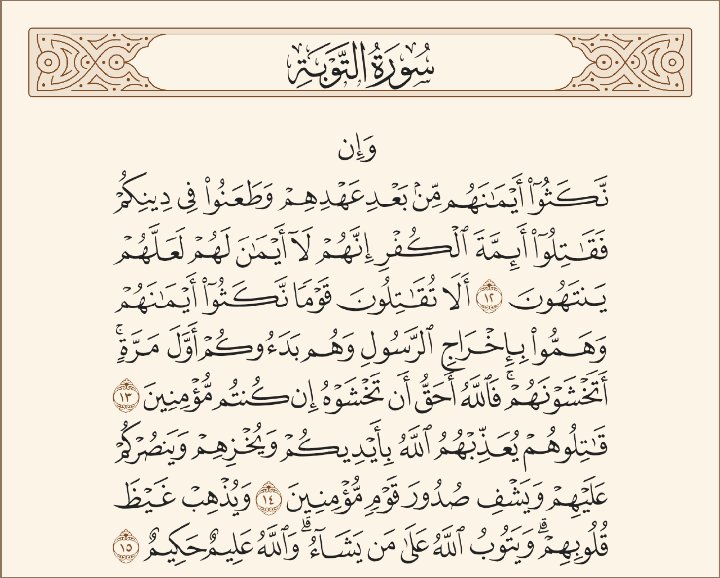 سُورَةُ التَّوۡبَةِ
وَإِن
نَّكَثُوٓاْ أَيۡمَٰنَهُم مِّنۢ بَعۡدِ عَهۡدِهِمۡ وَطَعَنُواْ فِي دِينِكُمۡ
فَقَٰتِلُوٓاْ أَئِمَّةَ ٱلۡكُفۡرِ إِنَّهُمۡ لَآ أَيۡمَٰنَ لَهُمۡ لَعَلَّهُمۡ
يَنتَهُونَ ١٢ أَلَا تُقَٰتِلُونَ قَوۡمٗا نَّكَثُوٓاْ أَيۡمَٰنَهُمۡ
وَهَمُّواْ بِإِخۡرَاجِ ٱلرَّسُولِ وَهُم بَدَءُوكُمۡ أَوَّلَ مَرَّةٍۚ
أَتَخۡشَوۡنَهُمۡۚ فَٱللَّهُ أَحَقُّ أَن تَخۡشَوۡهُ إِن كُنتُم مُّؤۡمِنِينَ ١٣
قَٰتِلُوهُمۡ يُعَذِّبۡهُمُ ٱللَّهُ بِأَيۡدِيكُمۡ وَيُخۡزِهِمۡ وَيَنصُرۡكُمۡ
عَلَيۡهِمۡ وَيَشۡفِ صُدُورَ قَوۡمٖ مُّؤۡمِنِينَ ١٤ وَيُذۡهِبۡ غَيۡظَ
قُلُوبِهِمۡۗ وَيَتُوبُ ٱللَّهُ عَلَىٰ مَن يَشَآءُۗ وَٱللَّهُ عَلِيمٌ حَكِيمٌ ١٥